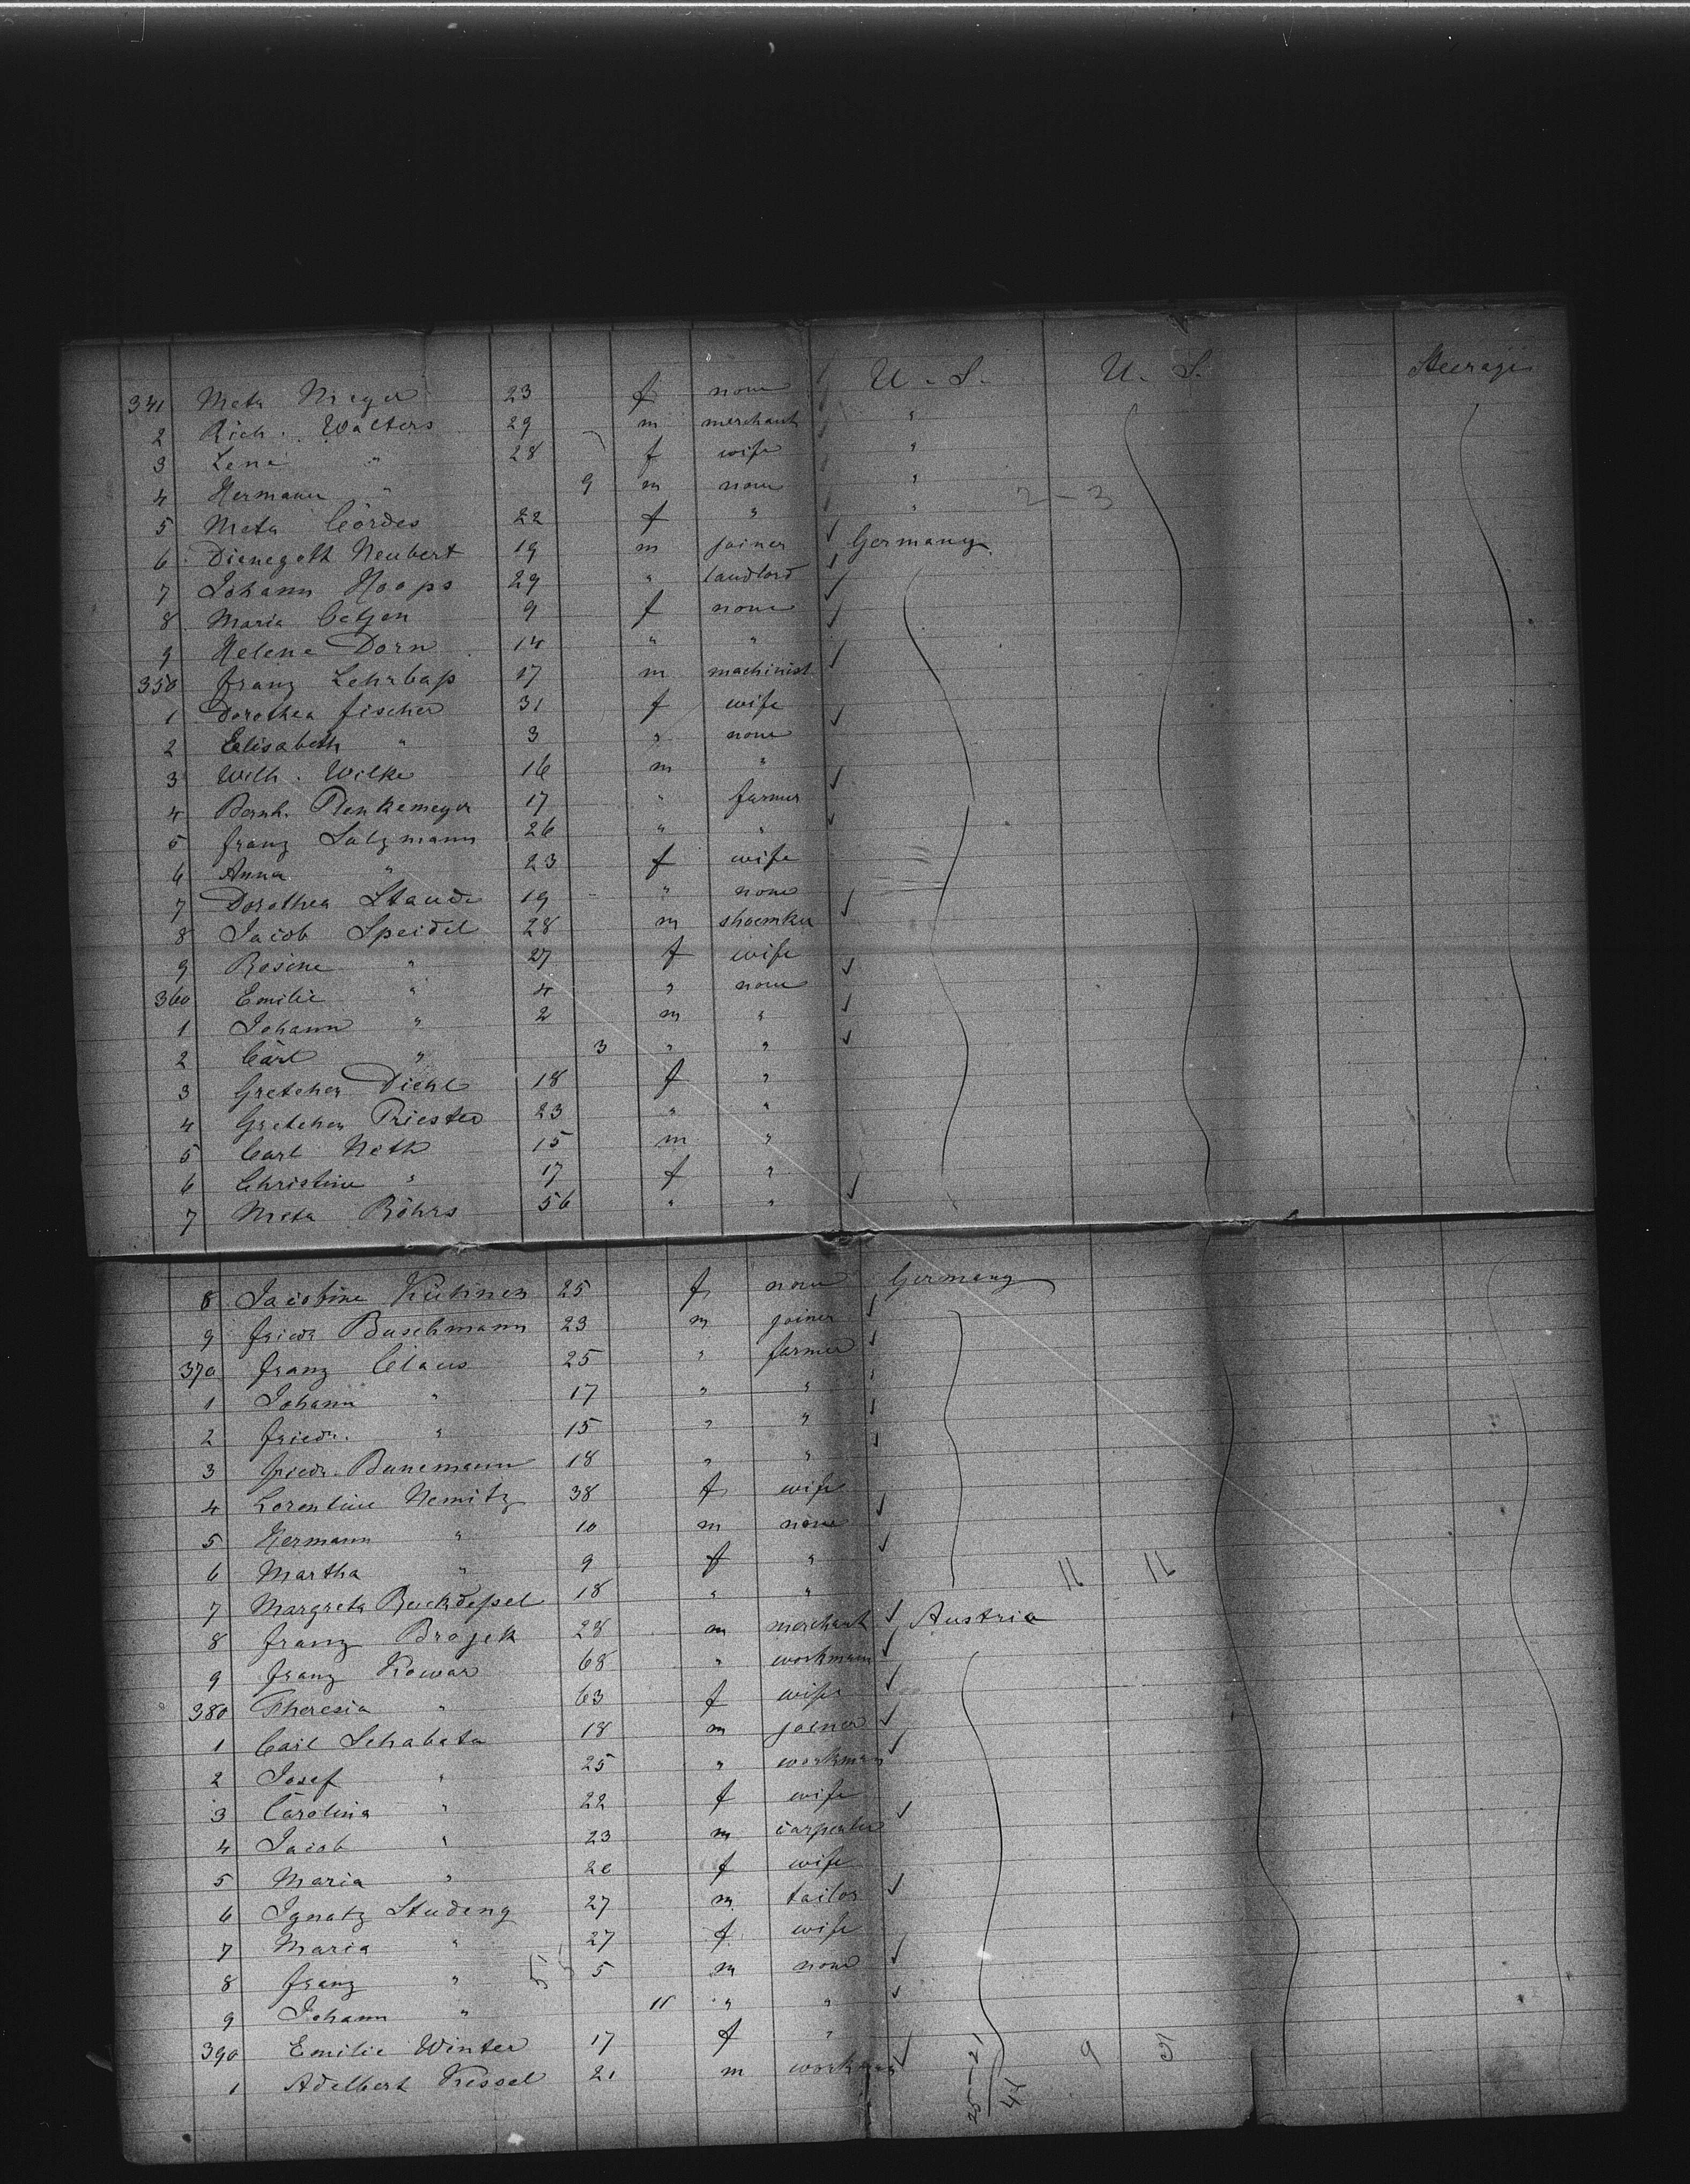 341 Meta Meyer 23 f none U. S. U. S. Steerage
2 Rich. Walters 29 m merchant "
3 Lene " 28 f wife "
4 Hermann " 9 m none "
5 Meta Cördes 22 f " " 2-3
6 Dienegott Neubert 19 m joiner Germany
7 Johann Hoops 29 " landlord
8 Maria Oetjen 9 f none
9 Helene Dorn 14 " "
350 Franz Lehrbaß 17 m machinist
1 Dorothea Fischer 31 f wife
2 Elisabeth " 3 " none
3 Wilh. Wilke 16 m "
4 Bernh. Plenkemeyer 17 " farmer
5 Franz Salzmann 26 " "
6 Anna " 23 f wife
7 Dorothea Staude 19 " none
8 Jacob Speidel 28 m shoemker
9 Rosine " 27 f wife
360 Emilie " 4 " none
1 Johann " 2 m "
2 Carl " 3 " "
3 Gretchen Diehl 18 f "
4 Gretchen Priester 23 " "
5 Carl Neth 15 m "
6 Christine " 17 f "
7 Meta Röhrs 56 " "
8 Jacobine Kühner 25 f none Germany
9 Friedr Buschmann 23 m joiner
370 Franz Claus 25 " farmer
1 Johann " 17 " "
2 Friedr. " 15 " "
3 Friedr. Bunemann 18 " "
4 Lorentine Nemitz 38 f wife
5 Hermann " 10 m none
6 Martha " 9 f " 11 11
7 Margreta Buckdeßel 18 " "
8 Franz Brojek 28 m merchant Austria
9 Franz Kowar 68 " workman
380 Theresia " 63 f wife
1 Carl Schabata 18 m joiner
2 Josef " 25 " workman
3 Carolina " 22 f wife
4 Jacob " 23 m carpenter
5 Maria " 20 f wife
6 Ignatz Studeny 27 m tailor
7 Maria " 27 f wife
8 Franz " 5 m none
9 Johann " 11 " "
390 Emilie Winter 17 f " 9
1 Adelbert Kessel 21 m workman